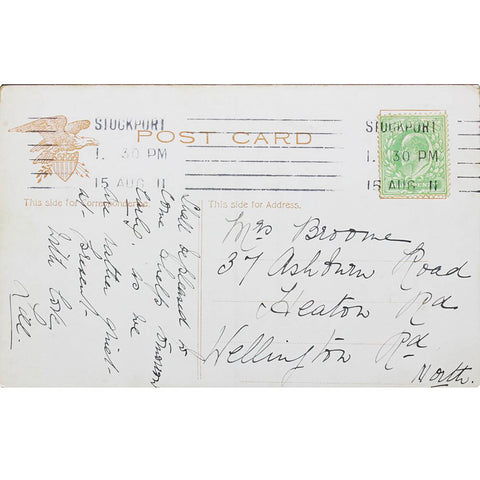 STOCKPORT
1. 30 PM
15 AUG 11
POST CARD
STOCKPORT
1. 30 PM
15 AUG 11
This side for Correspondence.
This side for Address.
Shall be pleased to
come & help tomorrow
early. as we
are rather quiet
at present
With Love
Mrs Broome
37 Ashburn Road
Heaton Rd
Wellington Rd
North.